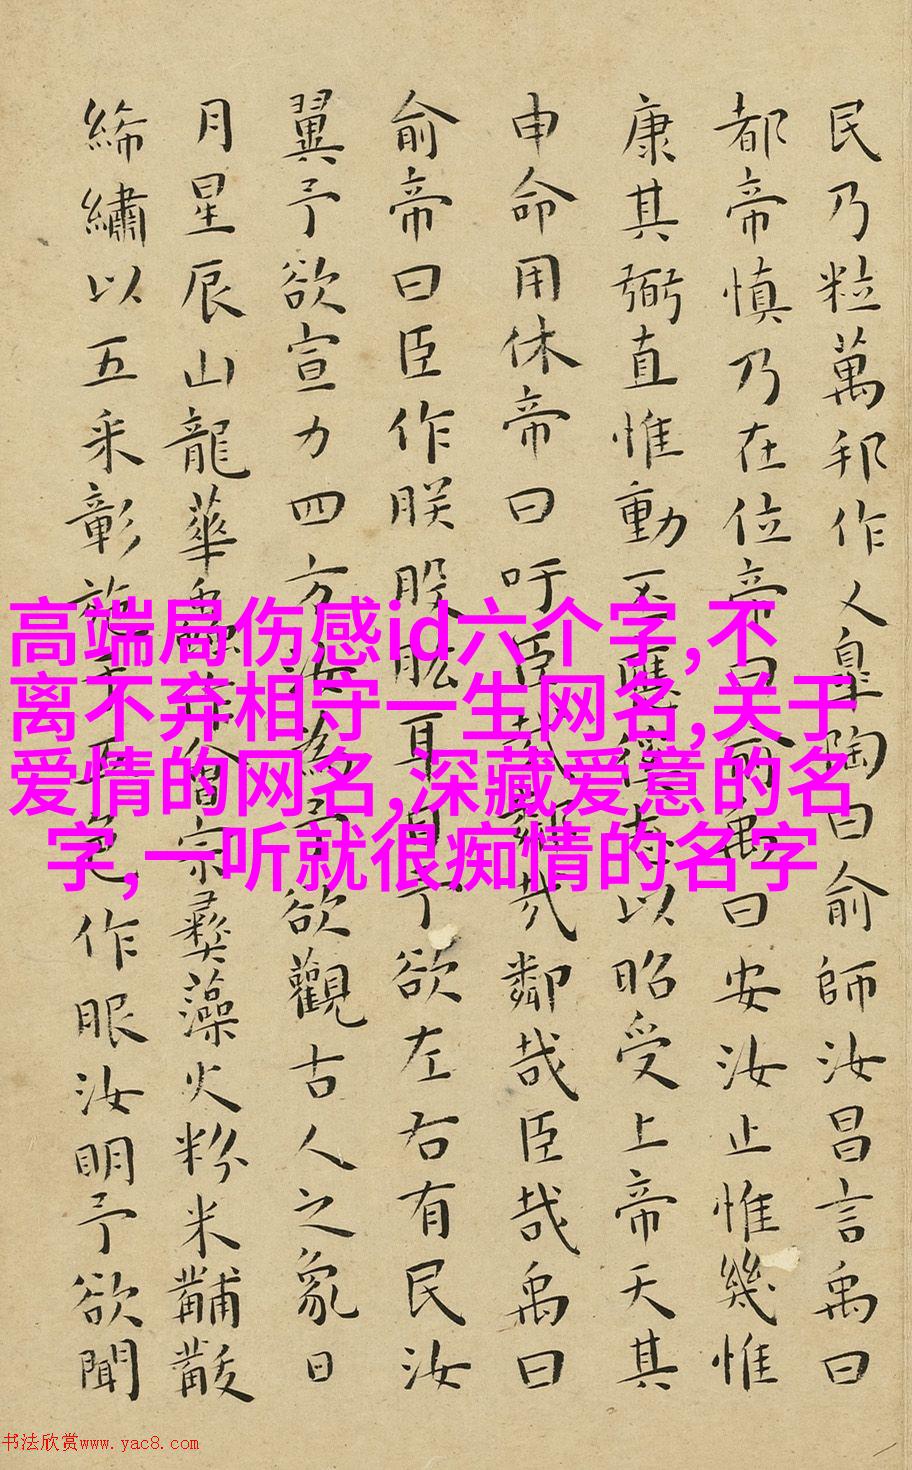 民乃粒萬邦作乂皋陶曰俞師汝昌言禹曰
都帝慎乃在位帝曰俞禹曰安汝止惟幾惟
康其弼直惟動丕應徯志以昭受上帝天其
申命用休帝曰吁臣哉鄰哉鄰哉臣哉禹曰
俞帝曰臣作朕股肱耳目予欲左右有民汝
翼予欲宣力四方汝為予欲觀古人之象日
月星辰山龍華蟲作會宗彝藻火粉米黼黻
絺繡以五采彰施于五色作服汝明予欲聞
高端局伤感id六个字,不
离不弃相守一生网名,关于
爱情的网名,深藏爱意的名
字,一听就很痴情的名字
书法欣赏www.yac8.com